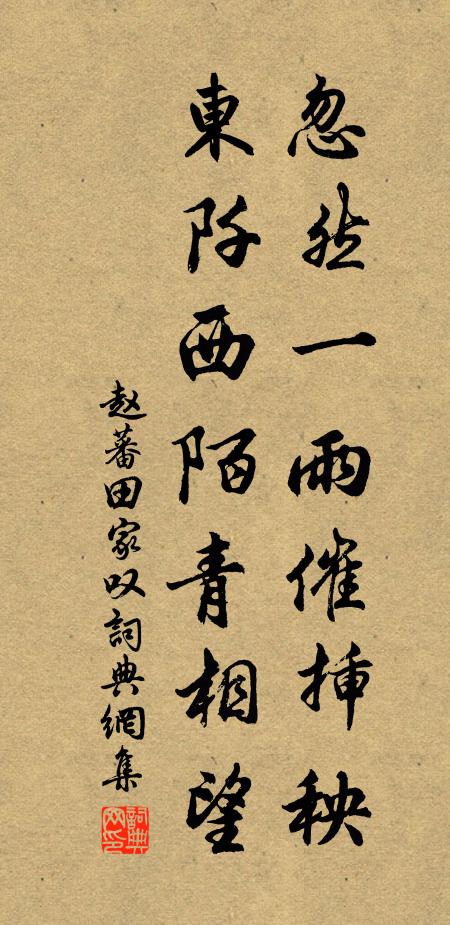 忽然一雨催揷秧
東阡西陌青相望
赵蕃田家叹詞典網集
詞典网印